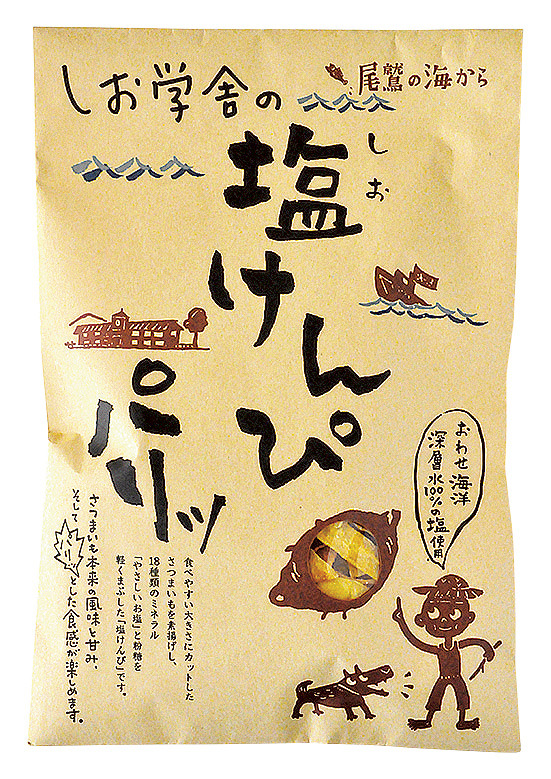 尾鷲の海から
しお学舎の
しお
塩けんぴ
パリッ
おわせ海洋
深層水100%の塩
使用
食べやすい大きさにカットした
さつまいもを素揚げし、
18種類のミネラル
「やさしいお塩」と粉糖を
軽くまぶした「塩けんぴ」です。
さつまいも本来の風味と甘み、
そしてぱりッとした食感が楽しめます。